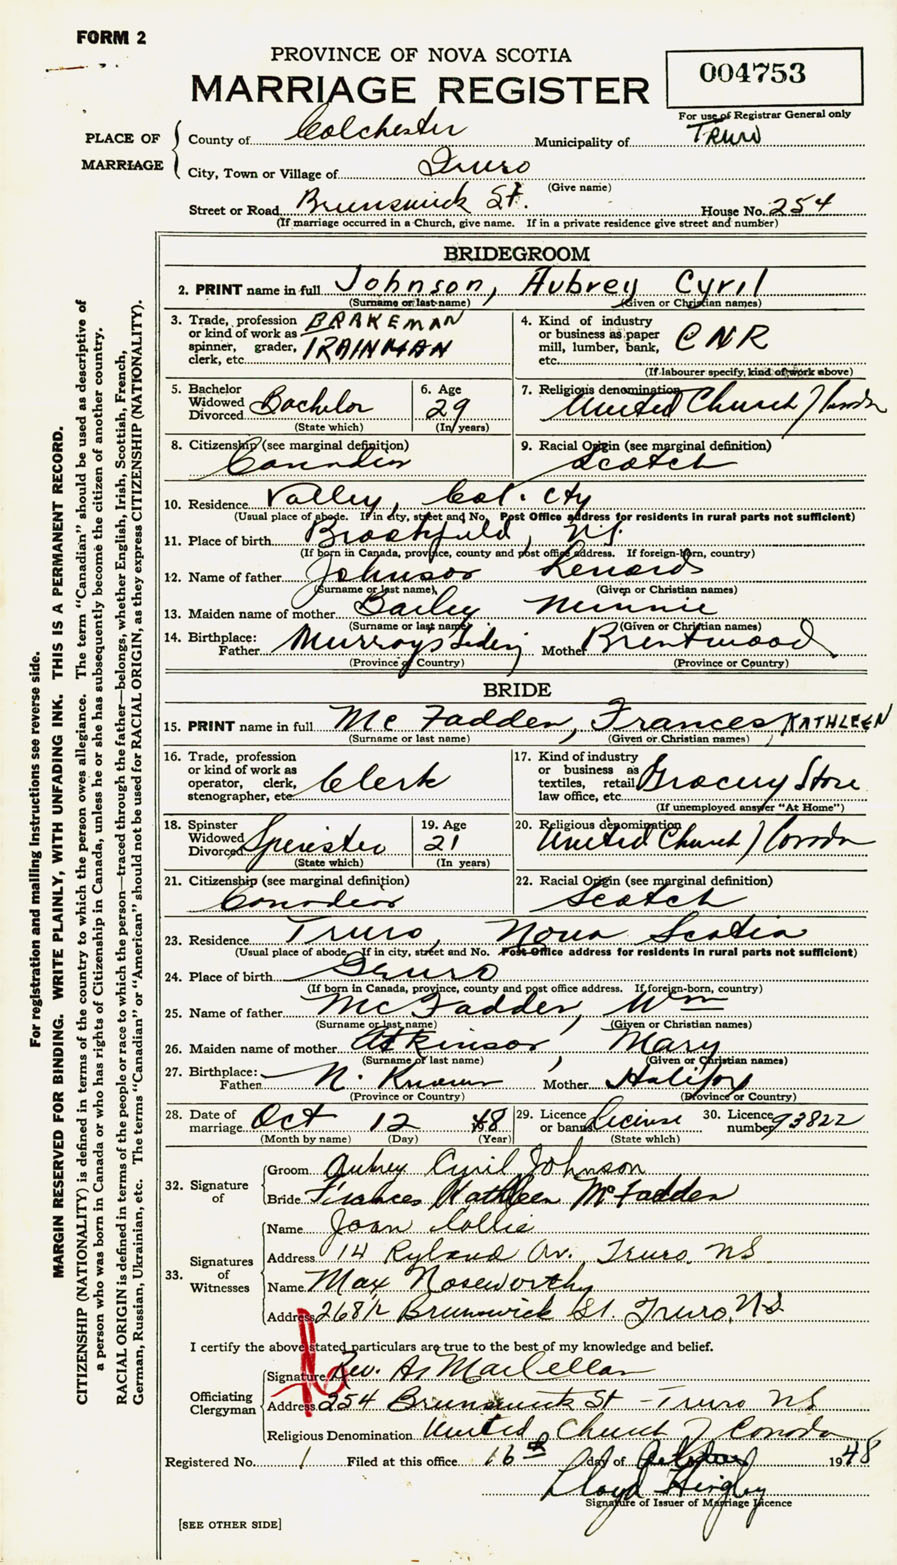 FORM 2
PROVINCE OF NOVA SCOTIA
MARRIAGE REGISTER
004753
For use of Registrar General only
PLACE OF MARRIAGE
County of Colchester Municipality of Truro
City, Town or Village of Truro
(Give name)
Street or Road Brunswick St. House No. 254
(If marriage occurred in a Church, give name. If in a private residence give street and number)
BRIDEGROOM
2. PRINT name in full Johnson, Aubrey Cyril
(Surname or last name) (Given or Christian names)
3. Trade, profession or kind of work as spinner, grader, clerk, etc. BRAKEMAN TRAINMAN
4. Kind of industry or business as paper mill, lumber, bank, etc. CNR
(If labourer specify, kind of work above)
5. Bachelor Widowed Divorced Bachelor
(State which)
6. Age 29
(In years)
7. Religious denomination United Church of Canada
8. Citizenship (see marginal definition) Canadian
9. Racial Origin (see marginal definition) Scotch
10. Residence Valley, Col. Cty
(Usual place of abode. If in city, street and No. Post Office address for residents in rural parts not sufficient)
11. Place of birth Brookfield, N.S.
(If born in Canada, province, county and post office address. If foreign-born, country)
12. Name of father Johnson Lenard
(Surname or last name) (Given or Christian names)
13. Maiden name of mother Bailey Minnie
(Surname or last name) (Given or Christian names)
14. Birthplace: Father Murray's Siding Mother Brentwood
(Province or Country) (Province or Country)
BRIDE
15. PRINT name in full McFadden, Frances KATHLEEN
(Surname or last name) (Given or Christian names)
16. Trade, profession or kind of work as operator, clerk, stenographer, etc. Clerk
17. Kind of industry or business as textiles, retail law office, etc. Grocery Store
(If unemployed answer "At Home")
18. Spinster Widowed Divorced Spinster
(State which)
19. Age 21
(In years)
20. Religious denomination United Church of Canada
21. Citizenship (see marginal definition) Canadian
22. Racial Origin (see marginal definition) Scotch
23. Residence Truro, Nova Scotia
(Usual place of abode. If in city, street and No. Post Office address for residents in rural parts not sufficient)
24. Place of birth Truro
(If born in Canada, province, county and post office address. If foreign-born, country)
25. Name of father McFadden, Wm
(Surname or last name) (Given or Christian names)
26. Maiden name of mother Atkinson, Mary
(Surname or last name) (Given or Christian names)
27. Birthplace: Father N. Known Mother Halifax
(Province or Country) (Province or Country)
28. Date of marriage Oct 12 48
(Month by name) (Day) (Year)
29. Licence or banns License
(State which)
30. Licence number 93822
32. Signature of
Groom Aubrey Cyril Johnson
Bride Frances Kathleen McFadden
33. Signatures of Witnesses
Name Joan Collie
Address 14 Ryland Av. Truro, NS
Name Max Noseworthy
Address 268½ Brunswick St. Truro, NS
I certify the above stated particulars are true to the best of my knowledge and belief.
Officiating Clergyman
Signature Rev. A. MacLellan
Address 254 Brunswick St - Truro NS
Religious Denomination United Church of Canada
Registered No. 1 Filed at this office 16th day of October 1948
Lloyd Hingley
Signature of Issuer of Marriage Licence
[SEE OTHER SIDE]
For registration and mailing instructions see reverse side.
MARGIN RESERVED FOR BINDING. WRITE PLAINLY, WITH UNFADING INK. THIS IS A PERMANENT RECORD.
CITIZENSHIP (NATIONALITY) is defined in terms of the country to which the person owes allegiance. The term "Canadian" should be used as descriptive of
a person who was born in Canada or who has rights of Citizenship in Canada, unless he or she has subsequently become the citizen of another country.
RACIAL ORIGIN is defined in terms of the people or race to which the person—traced through the father—belongs, whether English, Irish, Scottish, French,
German, Russian, Ukrainian, etc. The terms "Canadian" or "American" should not be used for RACIAL ORIGIN, as they express CITIZENSHIP (NATIONALITY).